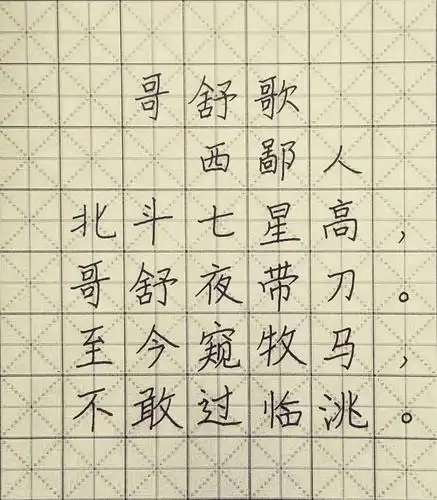 哥舒歌
西鄙人
北斗七星高，
哥舒夜带刀。
至今窥牧马，
不敢过临洮。